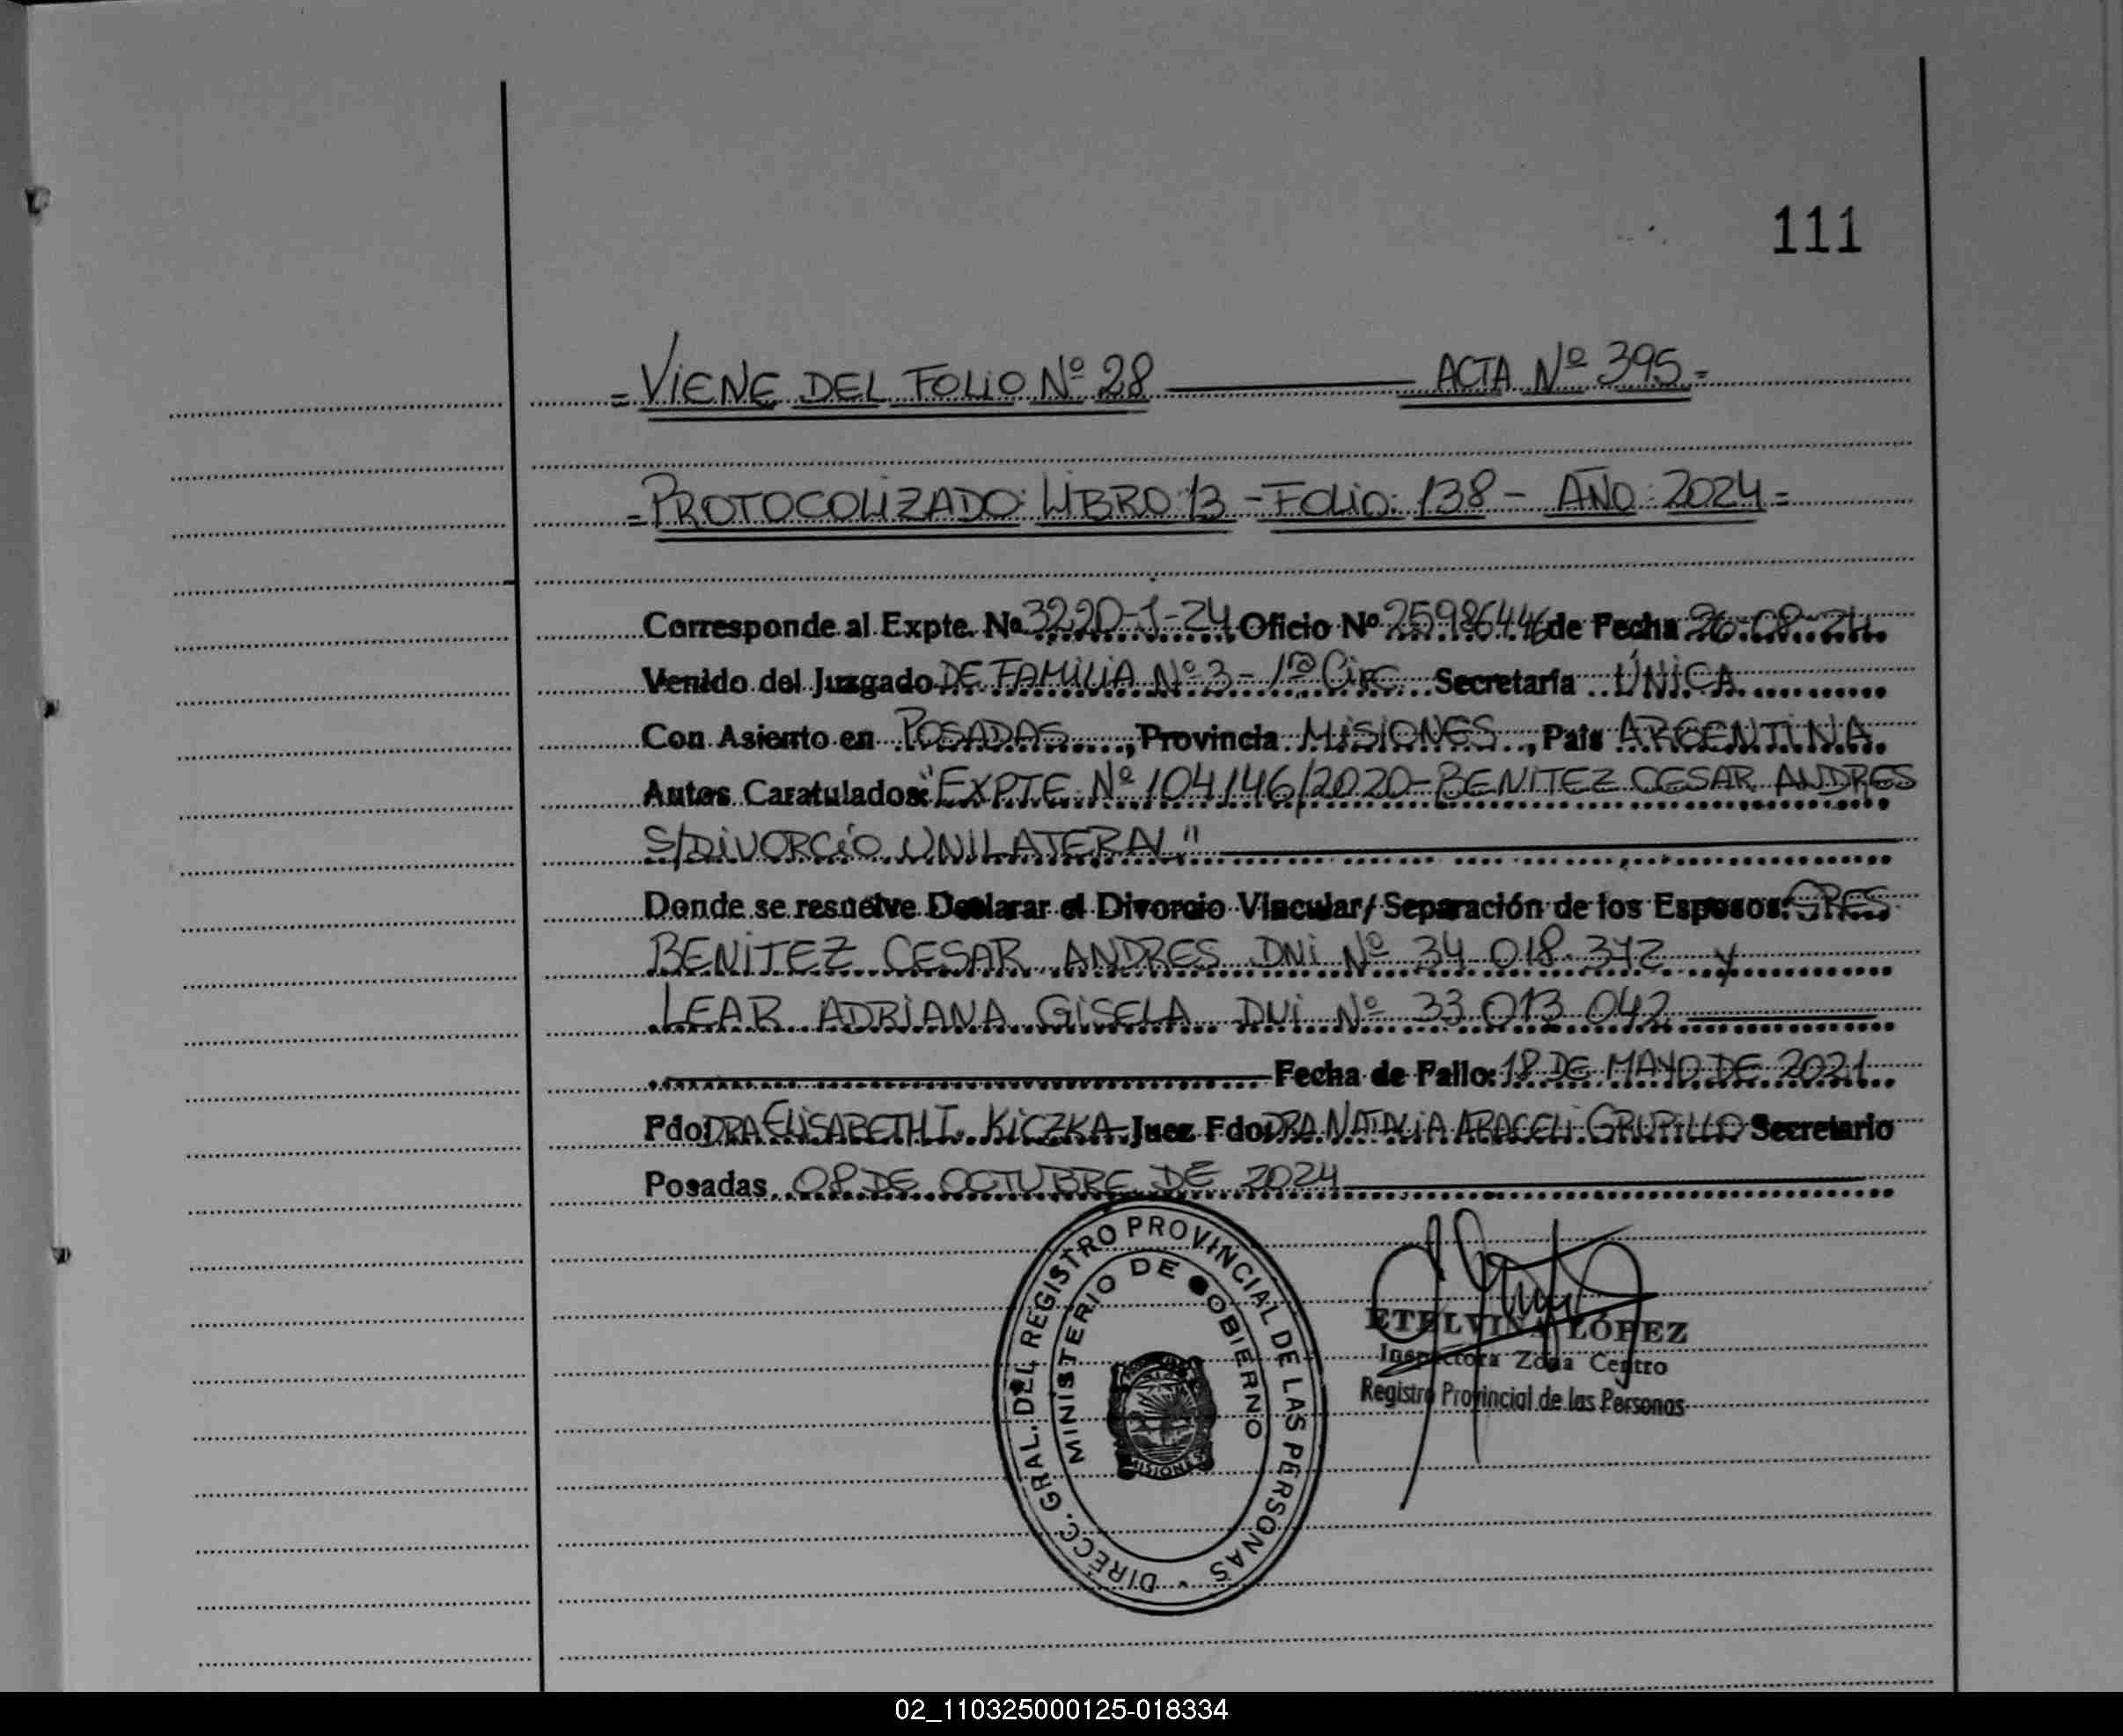 111
= VIENE DEL FOLIO Nº 28 ACTA Nº 395 =
= PROTOCOLIZADO: LIBRO 13 - FOLIO: 138 - AÑO: 2024 =
Corresponde al Expte. Nº 3220-1-24 Oficio Nº 25986446 de Fecha 26-08-24
Venido del Juzgado DE FAMILIA Nº 3 - 1ª Circ. Secretaría ÚNICA
Con Asiento en POSADAS, Provincia MISIONES, País ARGENTINA.
Autos Caratulados: "EXPTE Nº 104146/2020 - BENITEZ CESAR ANDRES
S/DIVORCIO UNILATERAL"
Donde se resuelve Declarar el Divorcio Vincular/ Separación de los Esposos: SRES
BENITEZ CESAR ANDRES DNI Nº 34.018.372 y
LEAR ADRIANA GISELA DNI Nº 33.013.042
Fecha de Fallo: 18 DE MAYO DE 2021
Fdo DRA ELISABETH I. KICZKA Juez Fdo: DRA. NATALIA ARACELI GRUPILLO Secretario
Posadas, 08 DE OCTUBRE DE 2024
DIRECC. GRAL. DEL REGISTRO PROVINCIAL DE LAS PERSONAS
MINISTERIO DE GOBIERNO
MISIONES
ETELVINA LÓPEZ
Inspectora Zona Centro
Registro Provincial de las Personas
02_110325000125-018334